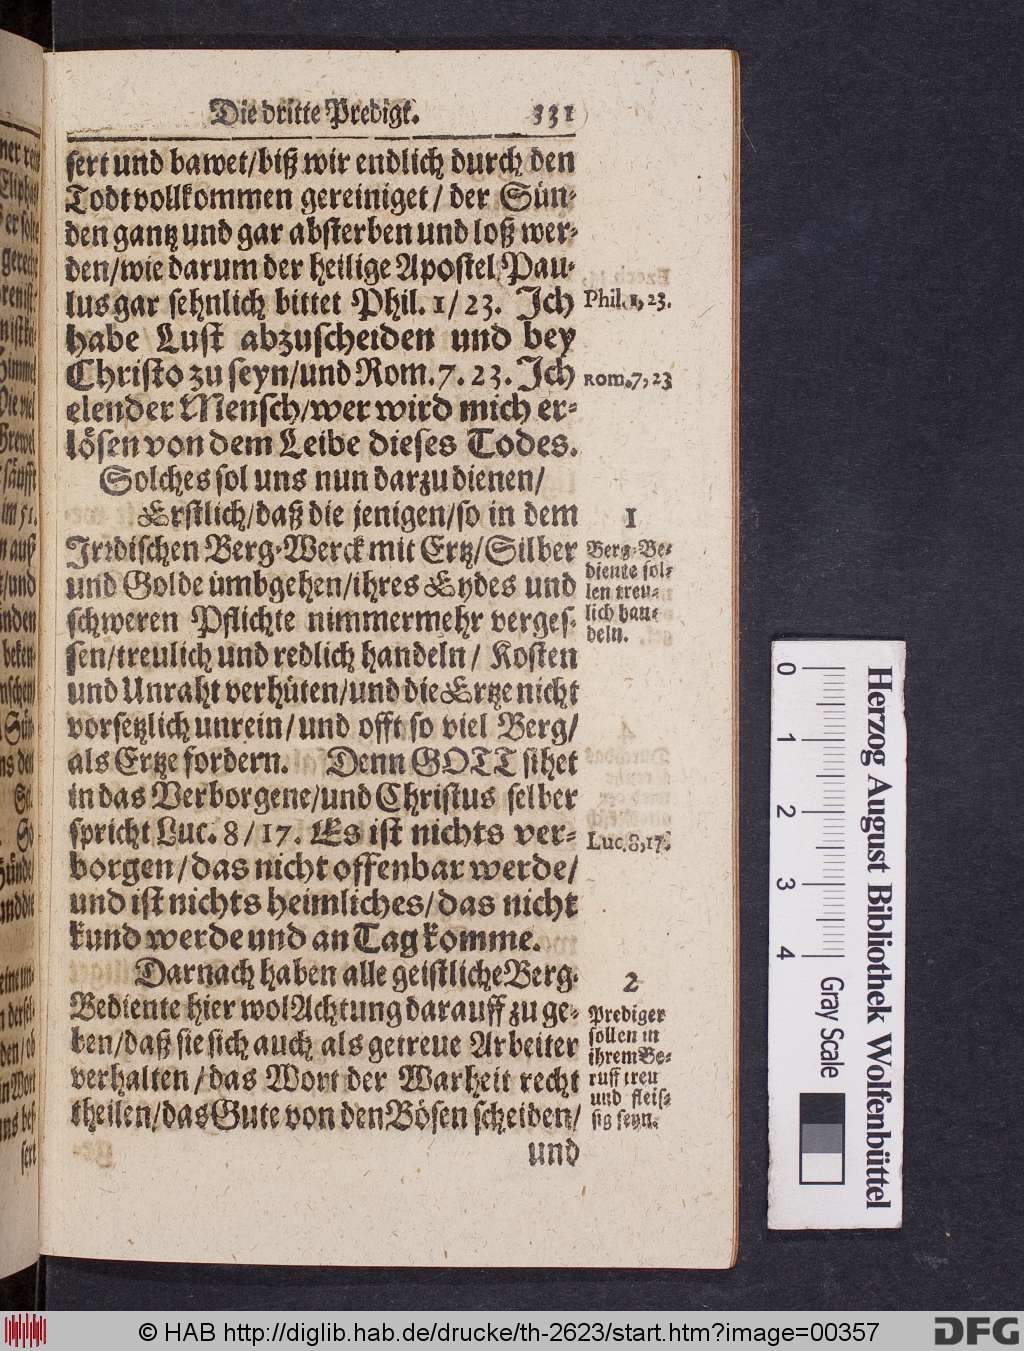 Die dritte Predigt. 331
sert und bawet/biß wir endlich durch den
Todt vollkommen gereiniget/ der Sün-
den gantz und gar absterben und loß wer-
den/wie darum der heilige Apostel Pau-
lus gar sehnlich bittet Phil. 1/23. Ich
habe Lust abzuscheiden und bey
Christo zu seyn/und Rom. 7. 23. Ich
elender Mensch/wer wird mich er-
lösen von dem Leibe dieses Todes.
Solches sol uns nun darzu dienen/
Erstlich/daß die jenigen/so in dem
Irrdischen Berg-Werck mit Ertz/Silber
und Golde ümbgehen/ihres Eydes und
schweren Pflichte nimmermehr verges-
sen/treulich und redlich handeln/ Kosten
und Unraht verhüten/und die Ertze nicht
vorsetzlich unrein/und offt so viel Berg/
als Ertze fordern. Denn GOTT sihet
in das Verborgene/und Christus selber
spricht Luc. 8/17. Es ist nichts ver-
borgen/das nicht offenbar werde/
und ist nichts heimliches/das nicht
kund werde und an Tag komme.
Darnach haben alle geistliche Berg-
Bediente hier wol Achtung darauff zu ge-
ben/daß sie sich auch als getreue Arbeiter
verhalten/das Wort der Warheit recht
theilen/das Gute von den Bösen scheiden/
und
Phil. 1, 23.
Rom. 7, 23
1
Berg-Be-
diente sol-
len treu-
lich han-
deln.
Luc. 8, 17.
2
Prediger
sollen in
ihrem Be-
ruff treu
und fleis-
sig seyn.
0 1 2 3 4
Gray Scale
Herzog August Bibliothek Wolfenbüttel
© HAB http://diglib.hab.de/drucke/th-2623/start.htm?image=00357
DFG